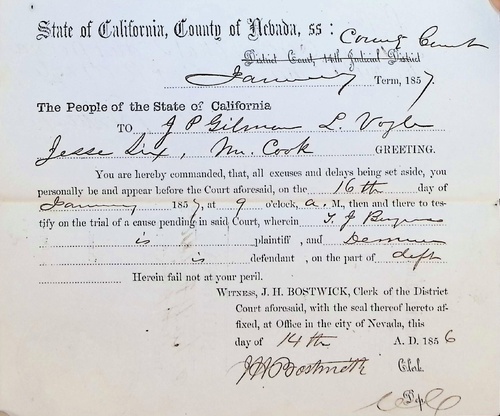 State of California, County of Nevada, ss:
County Court
District Court, 14th Judicial District
January Term, 1857.
The People of the State of California
TO J P Gilman L. Vogle
Jesse Dix, Mr. Cook GREETING.
You are hereby commanded, that, all excuses and delays being set aside, you
personally be and appear before the Court aforesaid, on the 16th day of
January 1857, at 9 o'clock, A. M., then and there to tes-
tify on the trial of a cause pending in said Court, wherein T. J. Burgess
is plaintiff, and
is defendant, on the part of deft
Herein fail not at your peril.
WITNESS, J. H. BOSTWICK, Clerk of the District
Court aforesaid, with the seal thereof hereto af-
fixed, at Office in the city of Nevada, this
day of 14th A. D. 1856
J H Bostwick Clerk.
Dep.